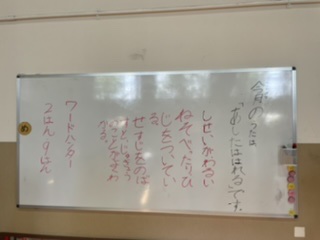 今月のうたは
「あしたははれる」です。
しせいがわるい
ねそべったりひ
じをついてい
る
せすじをのば
ワードハンター
2はん 9はん